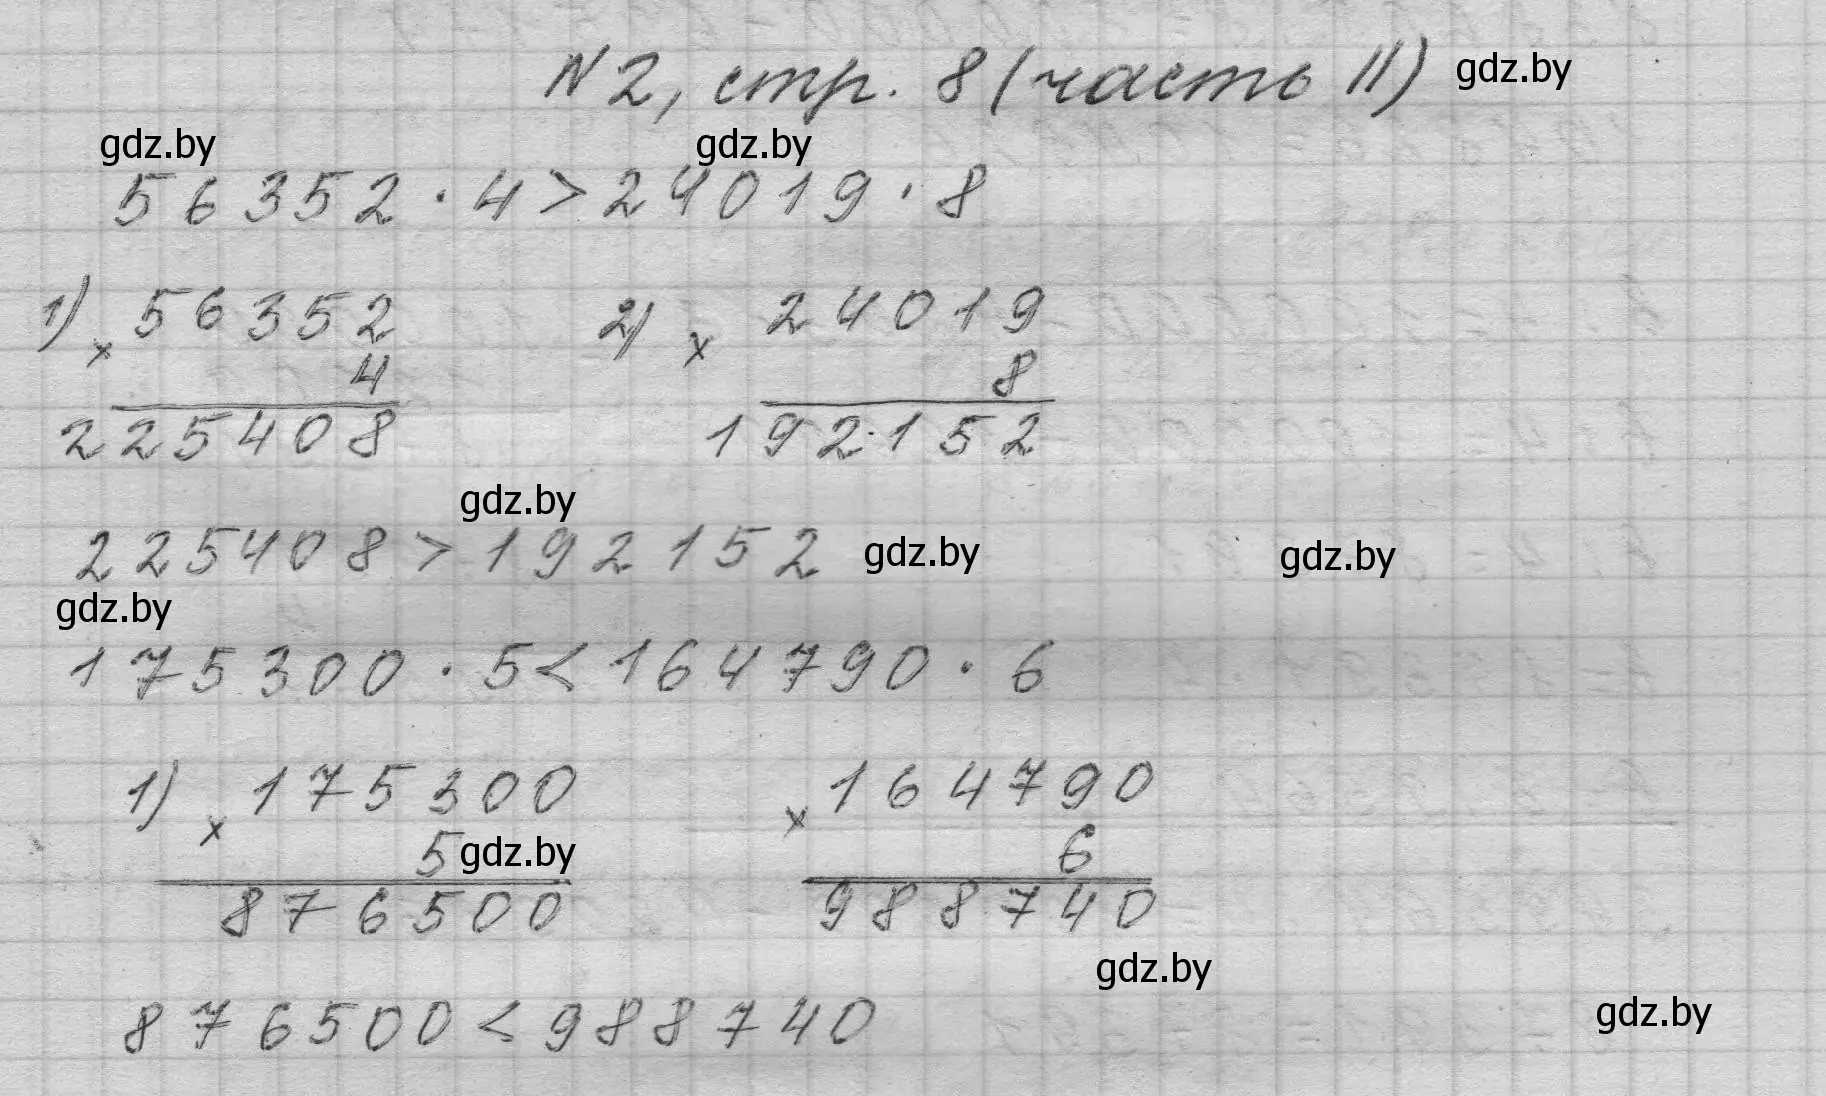 N2, стр. 8 (часть II) gdz.by
gdz.by gdz.by
56352 · 4 > 24019 · 8
1) × 56352 2) × 24019
4 8
225408 192152
gdz.by
225408 > 192152 gdz.by gdz.by
gdz.by
175300 · 5 < 164790 · 6
1) × 175300 × 164790
5 gdz.by 6
876500 988740
gdz.by
876500 < 988740 gdz.by